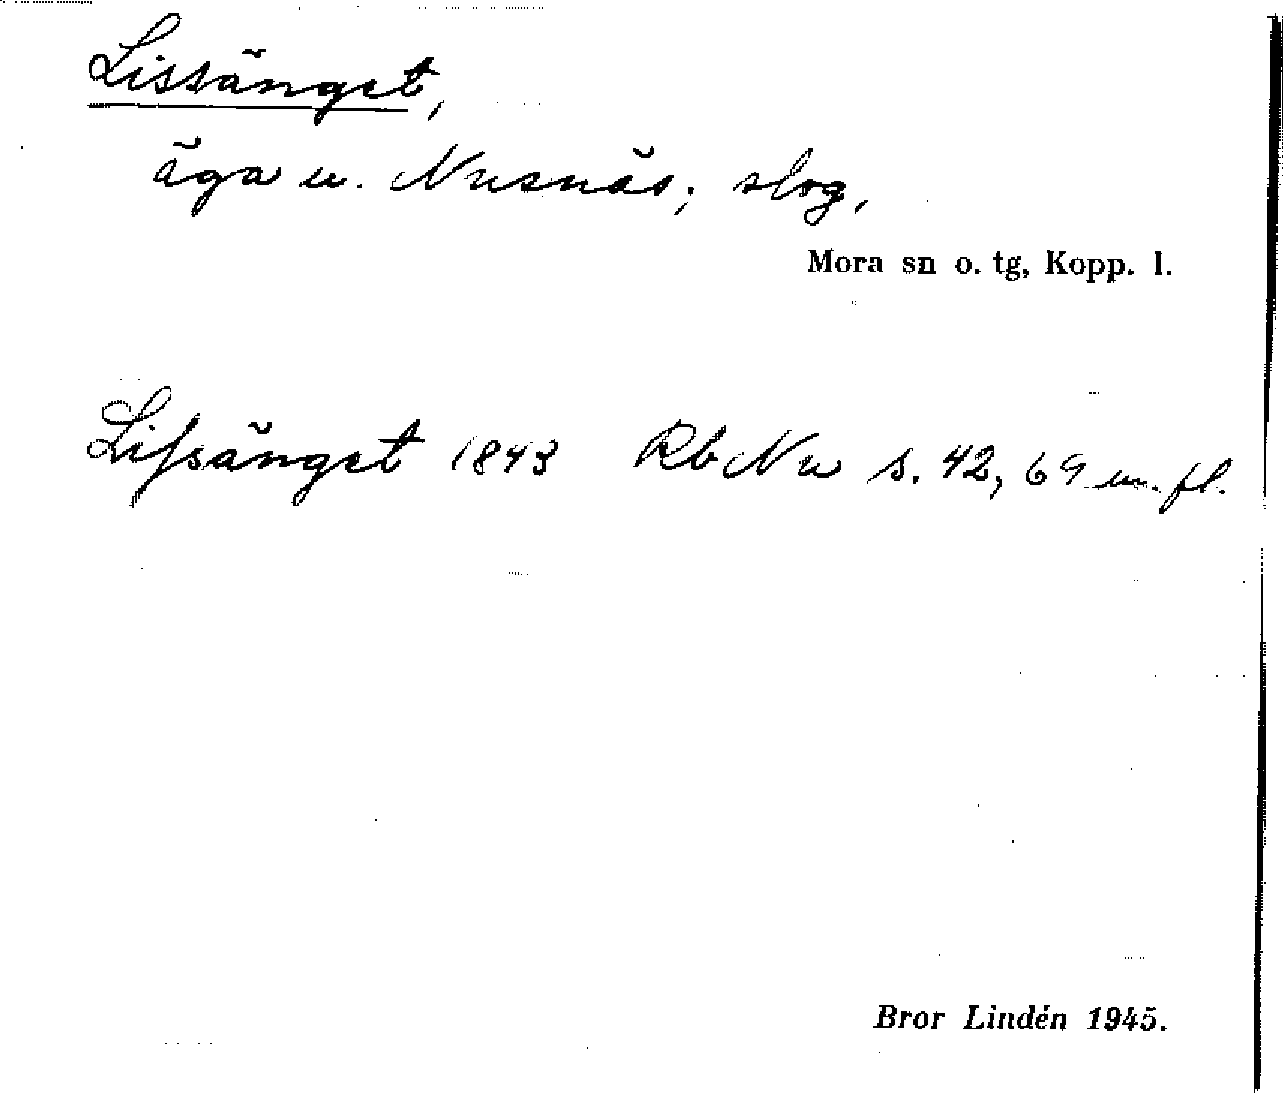 Lissänget,
äga u. Nusnäs; slog,
Mora sn o. tg, Kopp. l.
Liſsänget 1843 Rb Nu s. 42, 69 m. fl.
Bror Lindén 1945.